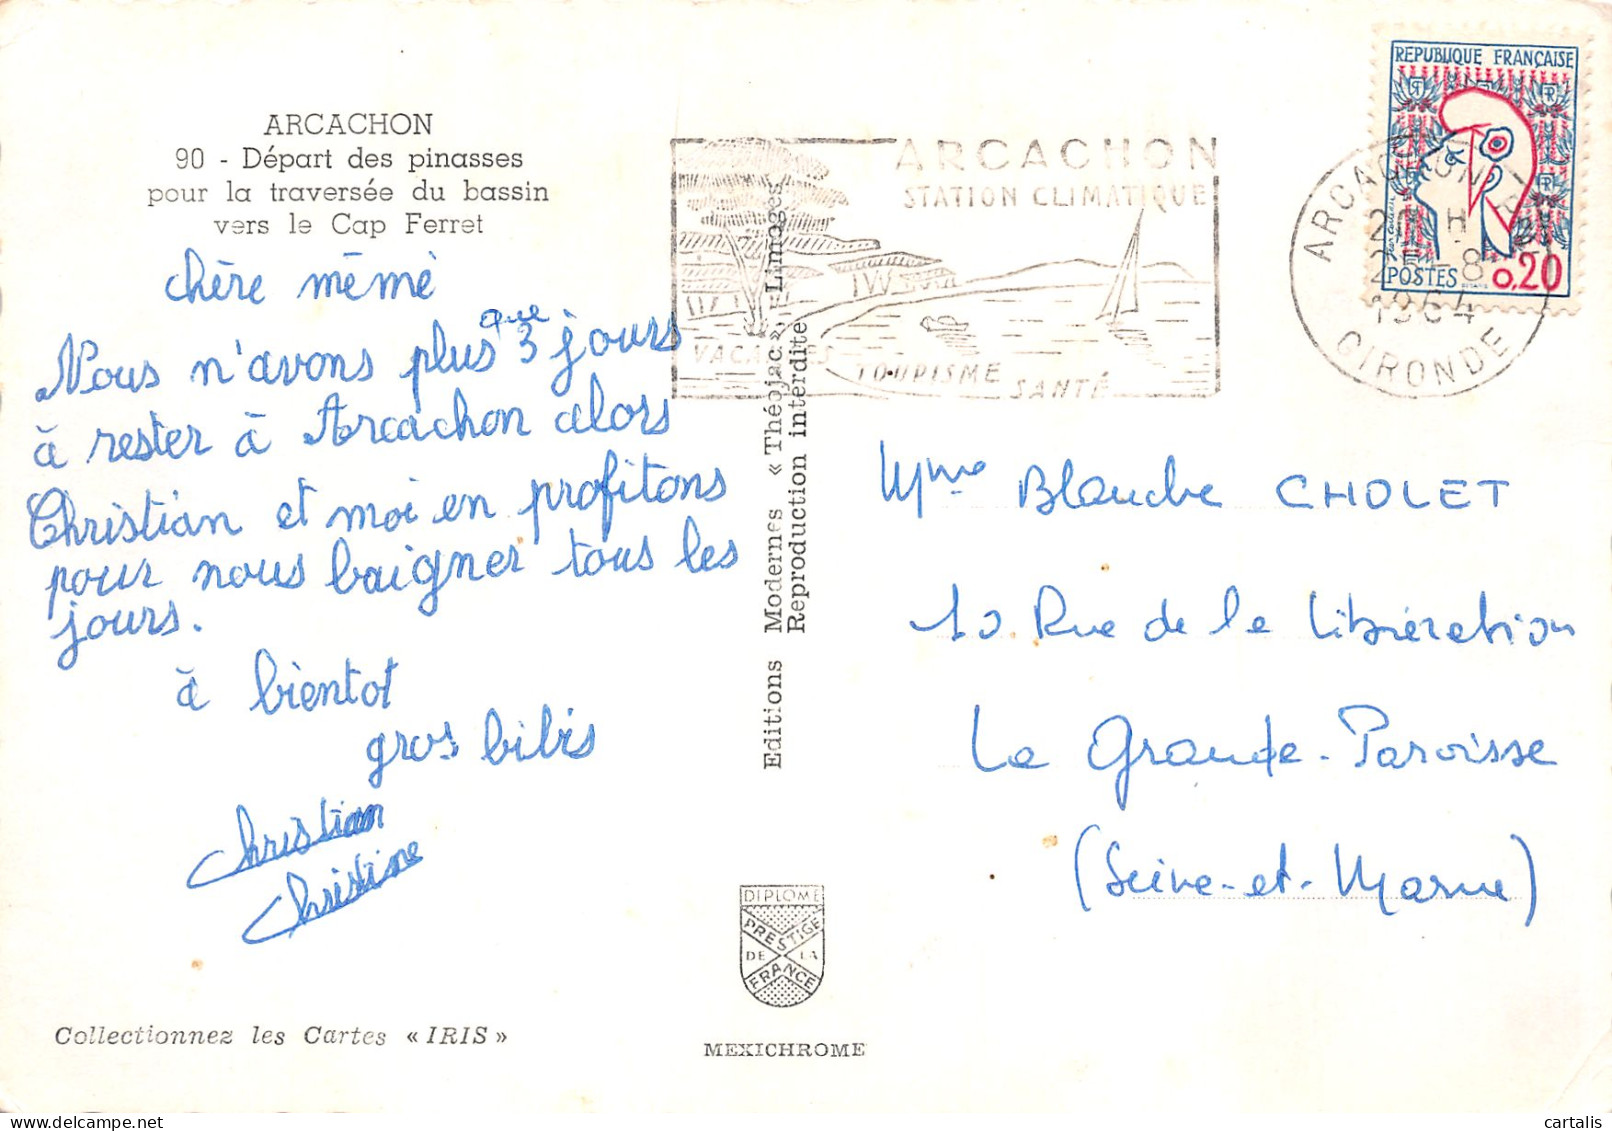 ARCACHON
90 - Départ des pinasses
pour la traversée du bassin
vers le Cap Ferret
chère mémé
Nous n'avons plus que 3 jours
à rester à Arcachon alors
Christian et moi en profitons
pour nous baigner tous les
jours.
à bientot
gros bibis
Christian
Christine
Collectionnez les Cartes « IRIS »
Editions Modernes « Théojac » Limoges
Reproduction interdite
DIPLOME
PRESTIGE
DE LA
FRANCE
MEXICHROME
ARCACHON
STATION CLIMATIQUE
VACANCES
TOURISME
SANTÉ
ARCACHON
1964
GIRONDE
REPUBLIQUE FRANÇAISE
POSTES 0,20
Mme Blanche CHOLET
10 Rue de la Libération
La Grande-Paroisse
(Seine-et-Marne)
delcampe.net
cartalis